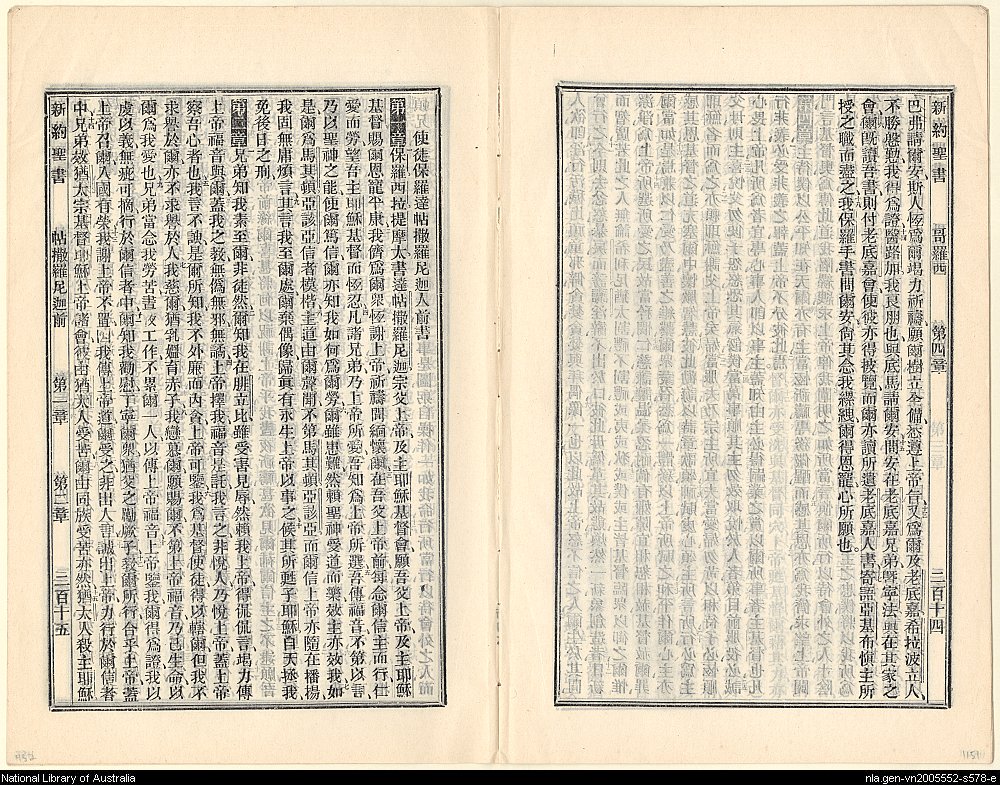 新約聖書 哥羅西 第四章 三百十四
巴弗請爾安斯人恆爲爾竭力祈禱願爾樹立全備悉遵上帝旨又爲爾及老底嘉希拉波立人
不勝慇懃我得爲證醫路加我良朋也與底馬請爾安問安在老底嘉兄弟暨寧法與在其家之
會爾旣讀吾書則付老底嘉會使彼亦得披覽而爾亦讀所遺老底嘉人書寄語亞基布愼主所
授之職而盡之我保羅手書問爾安尙其念我縲絏爾得恩寵心所願也
使徒保羅達帖撒羅尼迦人前書
第一章 保羅西拉提摩太書達帖撒羅尼迦宗父上帝及主耶穌基督會願吾父上帝及主耶穌
基督賜爾恩寵平康我儕爲爾衆恆謝上帝祈禱間緬懷爾在吾父上帝前每念爾信主而行仁
愛而勞望吾主耶穌基督而恆忍凡諸兄弟乃上帝所愛吾知爾爲上帝所選吾傳福音不第以言
乃以聖神之能使爾篤信爾亦知我如何爲爾勞爾雖患難然賴聖神愛道而樂效主亦效我如
是爾爲馬其頓亞該亞信者模楷主道由爾聲聞不第馬其頓亞該亞而爾信上帝亦隨在播揚
我固無庸煩言其言我至爾處爾棄偶像歸眞有永生上帝以事之候其所甦子耶穌自天拯我
免後日之刑
第二章 兄弟知我素至爾非徒然爾知我在腓立比雖受害見辱然賴我上帝得侃言竭力傳
上帝福音與爾蓋我之敎無僞無邪無譎上帝擇我福音是託我言之非悅人乃悅上帝蓋上帝
察吾心者也我言不諛是爾所知我不外廉而內貪上帝可鑒我爲基督使徒得以轄爾但我不
求譽於爾亦不求譽於人我慈爾猶乳媼育赤子我戀慕爾願賜爾不第上帝福音乃己生命以
爾爲我愛也兄弟當念我勞苦晝夜工作不累爾一人以傳上帝福音上帝鑒我爾得爲證我以
虔以義無疵可摘行於爾信者中爾知我勸慰丁寧爾衆猶父之勵厥子敎爾所行合乎上帝蓋
上帝召爾入國有榮我謝上帝不置因我傳上帝道爾受之非由人言誠由上帝力行於爾信者
中兄弟效猶太宗基督耶穌上帝諸會彼由猶太人受害爾由同族受苦亦然猶太人殺主耶穌
新約聖書 帖撒羅尼迦前 第一章 第二章 三百十五
National Library of Australia
nla.gen-vn2005552-s578-e